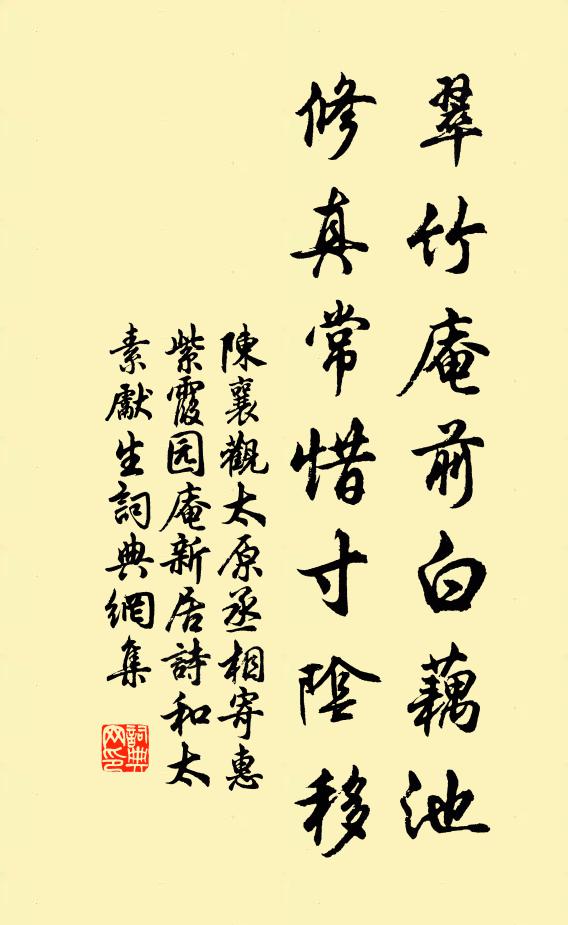 翠竹庵前白藕池
修真常惜寸陰移
陳襄觀太原丞相寄惠
紫霞园庵新居詩和太
素獻生詞典網集
詞典
网印